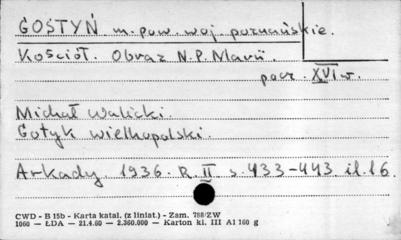 GOSTYŃ m. pow. woj. poznańskie.
Kościół. Obraz N.P. Marii.
pocz. XVI w.
Michał Walicki.
Gotyk wielkopolski.
Arkady. 1936. R. II s. 433-443 il. 16.
CWD - B 15b - Karta katal. (z liniat.) - Zam. 788/ZW
1060 — ŁDA — 21.4.60 — 2.360.000 — Karton kl. III A1 160 g